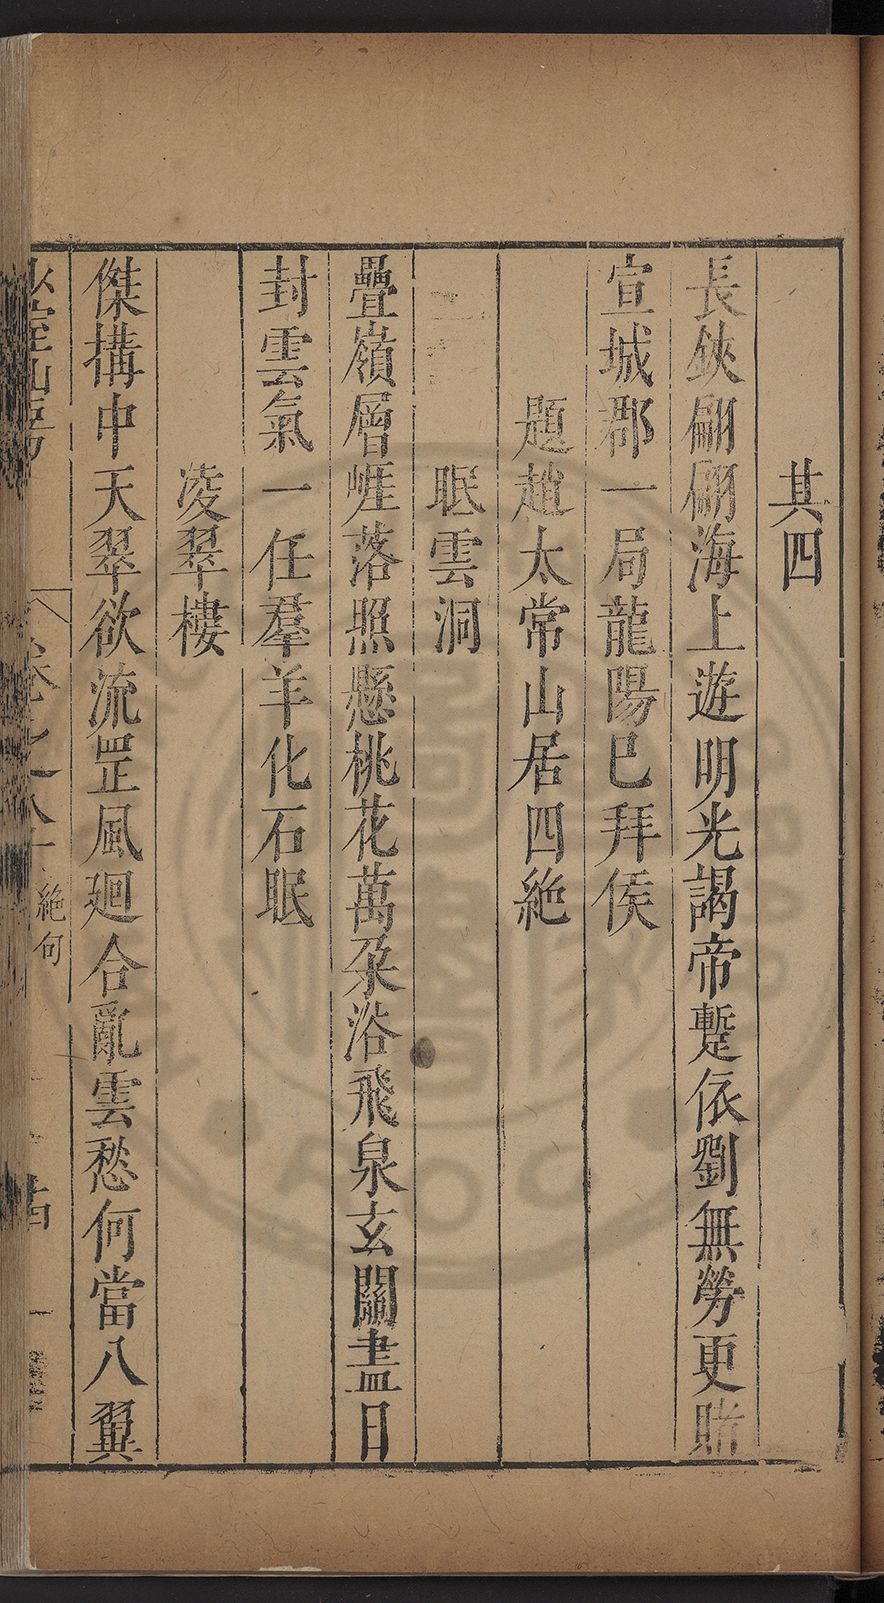 其四
長鋏翩翩海上遊明光謁帝蹔依劉無勞更賭
宣城郡一局龍陽已拜侯
題趙太常山居四絶
眠雲洞
疊嶺層崕落照懸桃花萬朶浴飛泉玄關盡日
封雲氣一任羣羊化石眠
凌翠樓
傑搆中天翠欲流罡風廻合亂雲愁何當八翼
絶句